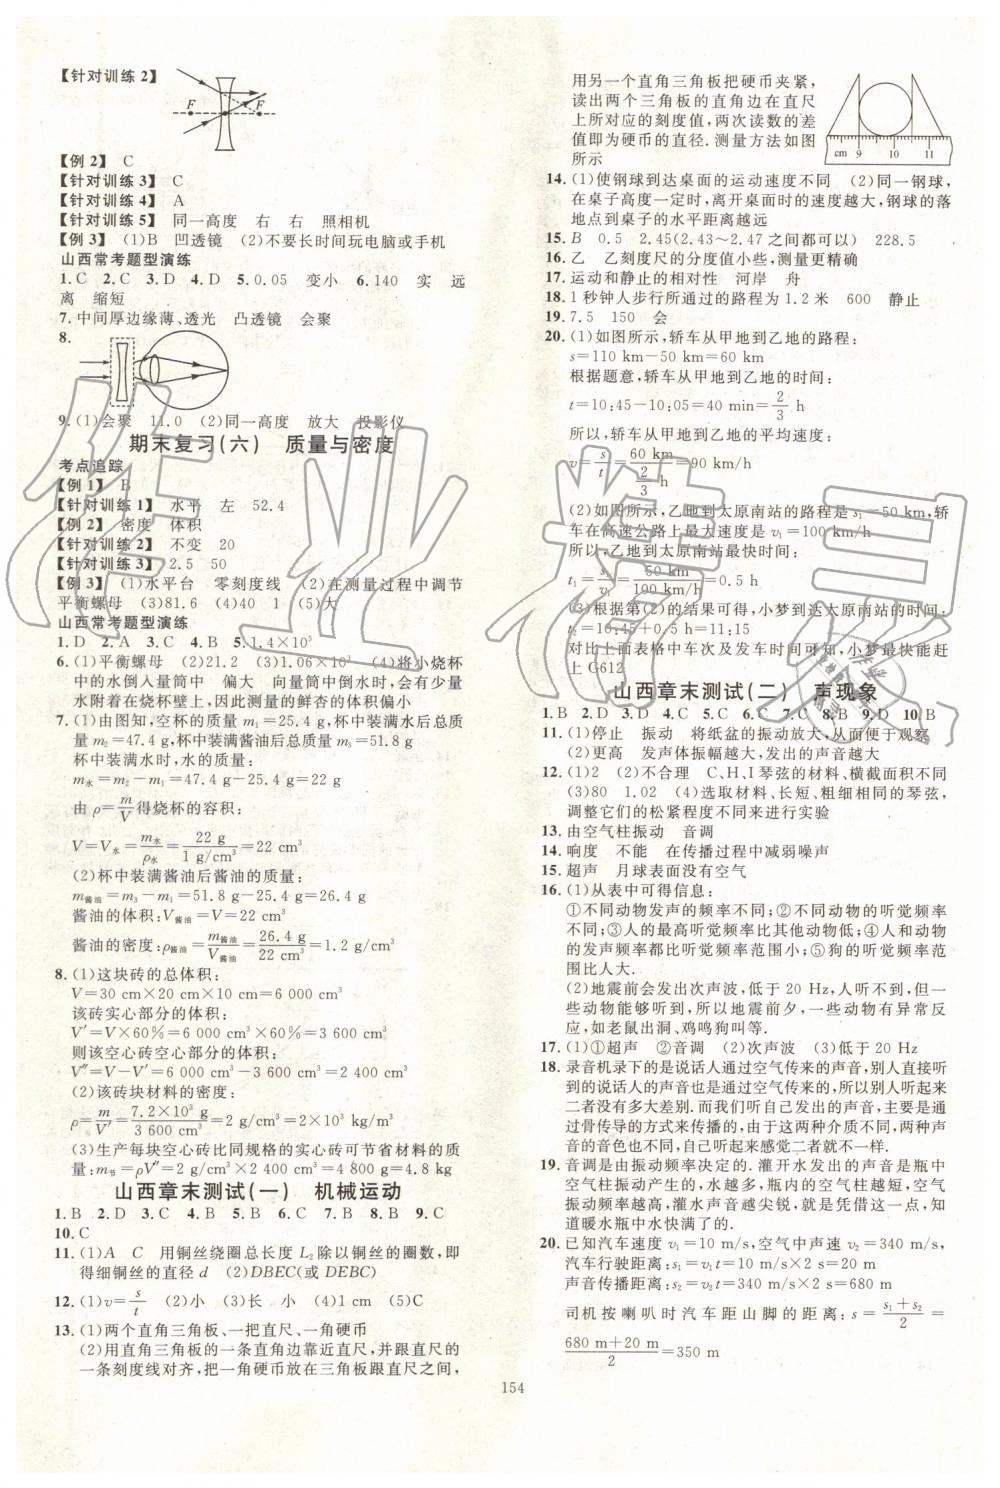 【针对训练2】
F F
【例2】 C
【针对训练3】 C
【针对训练4】 A
【针对训练5】 同一高度 右 右 照相机
【例3】 (1)B 凹透镜 (2)不要长时间玩电脑或手机
山西常考题型演练
1.C 2.C 3.D 4.D 5.0.05 变小 6.140 实 远
离 缩短
7.中间厚边缘薄、透光 凸透镜 会聚
8.
9.(1)会聚 11.0 (2)同一高度 放大 投影仪
期末复习(六) 质量与密度
考点追踪
【例1】 B
【针对训练1】 水平 左 52.4
【例2】 密度 体积
【针对训练2】 不变 20
【针对训练3】 2.5 50
【例3】 (1)水平台 零刻度线 (2)在测量过程中调节
平衡螺母 (3)81.6 (4)40 1 (5)大
山西常考题型演练
1.D 2.A 3.C 4.B 5.1.4×10⁵
6.(1)平衡螺母 (2)21.2 (3)1.06×10³ (4)将小烧杯
中的水倒入量筒中 偏大 向量筒中倒水时,会有少量
水附着在烧杯壁上,因此测量的鲜杏的体积偏小
7.(1)由图知,空杯的质量 m₁=25.4 g,杯中装满水后总质
量 m₂=47.4 g,杯中装满酱油后总质量 m₃=51.8 g
杯中装满水时,水的质量:
m水=m₂-m₁=47.4 g-25.4 g=22 g
由 ρ=m/V得烧杯的容积:
V=V水=m水/ρ水=22 g/1 g/cm³=22 cm³
(2)杯中装满酱油后酱油的质量:
m酱油=m₃-m₁=51.8 g-25.4 g=26.4 g
酱油的体积:V酱油=V=22 cm³
酱油的密度:ρ酱油=m酱油/V酱油=26.4 g/22 cm³=1.2 g/cm³
8.(1)这块砖的总体积:
V=30 cm×20 cm×10 cm=6 000 cm³
该砖实心部分的体积:
V′=V×60%=6 000 cm³×60%=3 600 cm³
则该空心砖空心部分的体积:
V″=V-V′=6 000 cm³-3 600 cm³=2 400 cm³
(2)该砖块材料的密度:
ρ=m/V′=7.2×10³ g/3 600 cm³=2 g/cm³=2×10³ kg/m³
(3)生产每块空心砖比同规格的实心砖可节省材料的质
量:m节=ρV″=2 g/cm³×2 400 cm³=4 800 g=4.8 kg
山西章末测试(一) 机械运动
1.B 2.D 3.C 4.C 5.D 6.B 7.B 8.B 9.C
10.C
11.(1)A C 用铜丝绕圈总长度 L₂除以铜丝的圈数,即
得细铜丝的直径 d (2)DBEC(或 DEBC)
12.(1)v=s/t (2)小 (3)长 小 (4)1 cm (5)C
13.(1)两个直角三角板、一把直尺、一角硬币
(2)用直角三角板的一条直角边靠近直尺,并跟直尺的
一条刻度线对齐,把一角硬币放在三角板跟直尺之间,
用另一个直角三角板把硬币夹紧,
读出两个三角板的直角边在直尺
上所对应的刻度值,两次读数的差
值即为硬币的直径.测量方法如图
所示
cm 9 10 11
14.(1)使钢球到达桌面的运动速度不同 (2)同一钢球,
在桌子高度一定时,离开桌面时的速度越大,钢球的落
地点到桌子的水平距离越远
15.B 0.5 2.45(2.43～2.47 之间都可以) 228.5
16.乙 乙刻度尺的分度值小些,测量更精确
17.运动和静止的相对性 河岸 舟
18.1 秒钟人步行所通过的路程为 1.2 米 600 静止
19.7.5 150 会
20.(1)如图所示,轿车从甲地到乙地的路程:
s=110 km-50 km=60 km
根据题意,轿车从甲地到乙地的时间:
t=10:45-10:05=40 min=2/3 h
所以,轿车从甲地到乙地的平均速度:
v=s/t=60 km/(2/3 h)=90 km/h
(2)如图所示,乙地到太原南站的路程 s₁=50 km,轿
车在高速公路上最大速度是 v₁=100 km/h
所以,乙地到太原南站最快时间:
t₁=s₁/v₁=50 km/100 km/h=0.5 h
(3)根据第(2)的结果可得,小梦到达太原南站的时间:
t₂=10:45+0.5 h=11:15
对比上面表格中车次及发车时间可知,小梦最快能赶
上 G612
山西章末测试(二) 声现象
1.B 2.D 3.D 4.C 5.C 6.C 7.C 8.B 9.D 10.B
11.(1)停止 振动 将纸盆的振动放大,从而便于观察
(2)更高 发声体振幅越大,发出的声音越大
12.(1)2 (2)不合理 C、H、I 琴弦的材料、横截面积不同
(3)80 1.02 (4)选取材料、长短、粗细相同的琴弦,
调整它们的松紧程度不同来进行实验
13.由空气柱振动 音调
14.响度 不能 在传播过程中减弱噪声
15.超声 月球表面没有空气
16.(1)从表中可得信息:
①不同动物发声的频率不同;②不同动物的听觉频率
不同;③人的最高听觉频率比其他动物低;④人和动物
的发声频率都比听觉频率范围小;⑤狗的听觉频率范
围比人大.
(2)地震前会发出次声波,低于 20 Hz,人听不到,但一
些动物能够听到,所以地震前夕,一些动物有异常反
应,如老鼠出洞、鸡鸣狗叫等.
17.(1)①超声 ②音调 (2)次声波 (3)低于 20 Hz
18.录音机录下的是说话人通过空气传来的声音,别人直接听
到的说话人的声音也是通过空气传来的,所以别人听起来
二者没有多大差别.而我们听自己发出的声音,主要是通
过骨传导的方式来传播的,由于这两种介质不同,两种声
音的音色也不同,自己听起来感觉二者就不一样.
19.音调是由振动频率决定的.灌开水发出的声音是瓶中
空气柱振动产生的,水越多,瓶内的空气柱越短,空气柱
振动频率越高,灌水声音越尖锐,就是凭借这一点,知
道暖水瓶中水快满了的.
20.已知汽车速度 v₁=10 m/s,空气中声速 v₂=340 m/s,
汽车行驶距离:s₁=v₁t=10 m/s×2 s=20 m
声音传播距离:s₂=v₂t=340 m/s×2 s=680 m
司机按喇叭时汽车距山脚的距离:s=(s₁+s₂)/2=
(680 m+20 m)/2=350 m
154